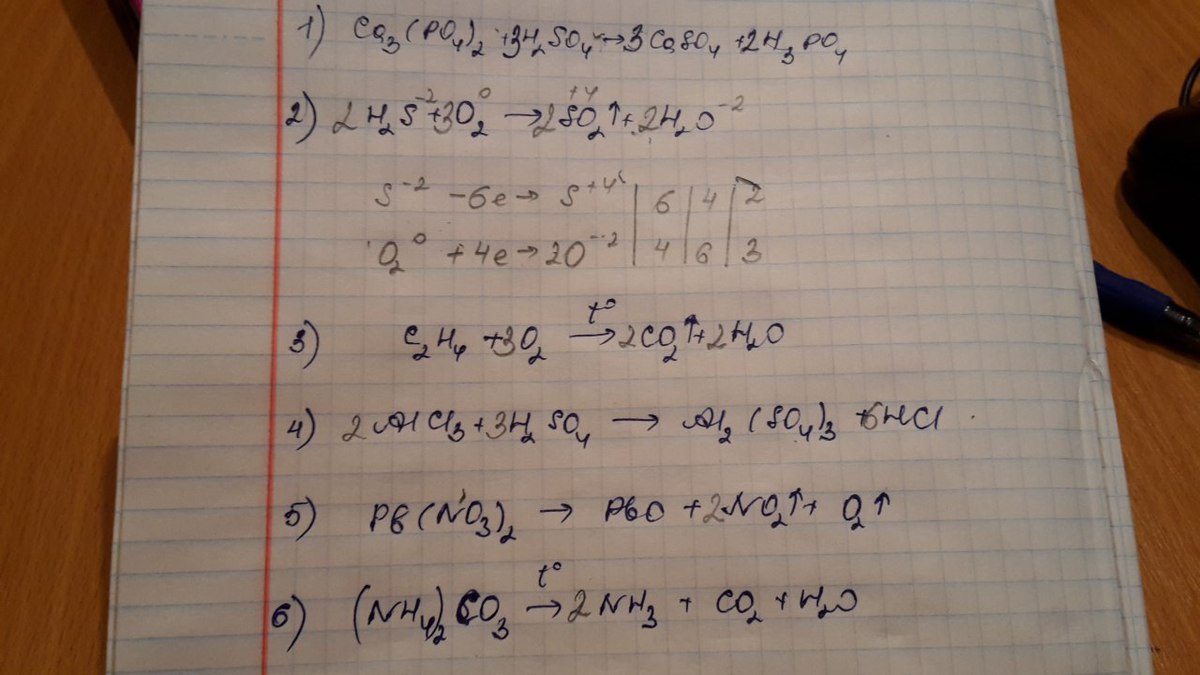 1) Ca₃(PO₄)₂ + 3H₂SO₄ → 3CaSO₄ + 2H₃PO₄
2) 2H₂S⁻² + 3O₂⁰ → 2S⁺⁴O₂↑ + 2H₂O⁻²
S⁻² - 6e → S⁺⁴ | 6 | 4 | 2
O₂⁰ + 4e → 2O⁻² | 4 | 6 | 3
3) C₂H₄ + 3O₂ →t° 2CO₂↑ + 2H₂O
4) 2AlCl₃ + 3H₂SO₄ → Al₂(SO₄)₃ + 6HCl
5) Pb(NO₃)₂ → PbO + 2NO₂↑ + O₂↑
6) (NH₄)₂CO₃ →t° 2NH₃ + CO₂ + H₂O